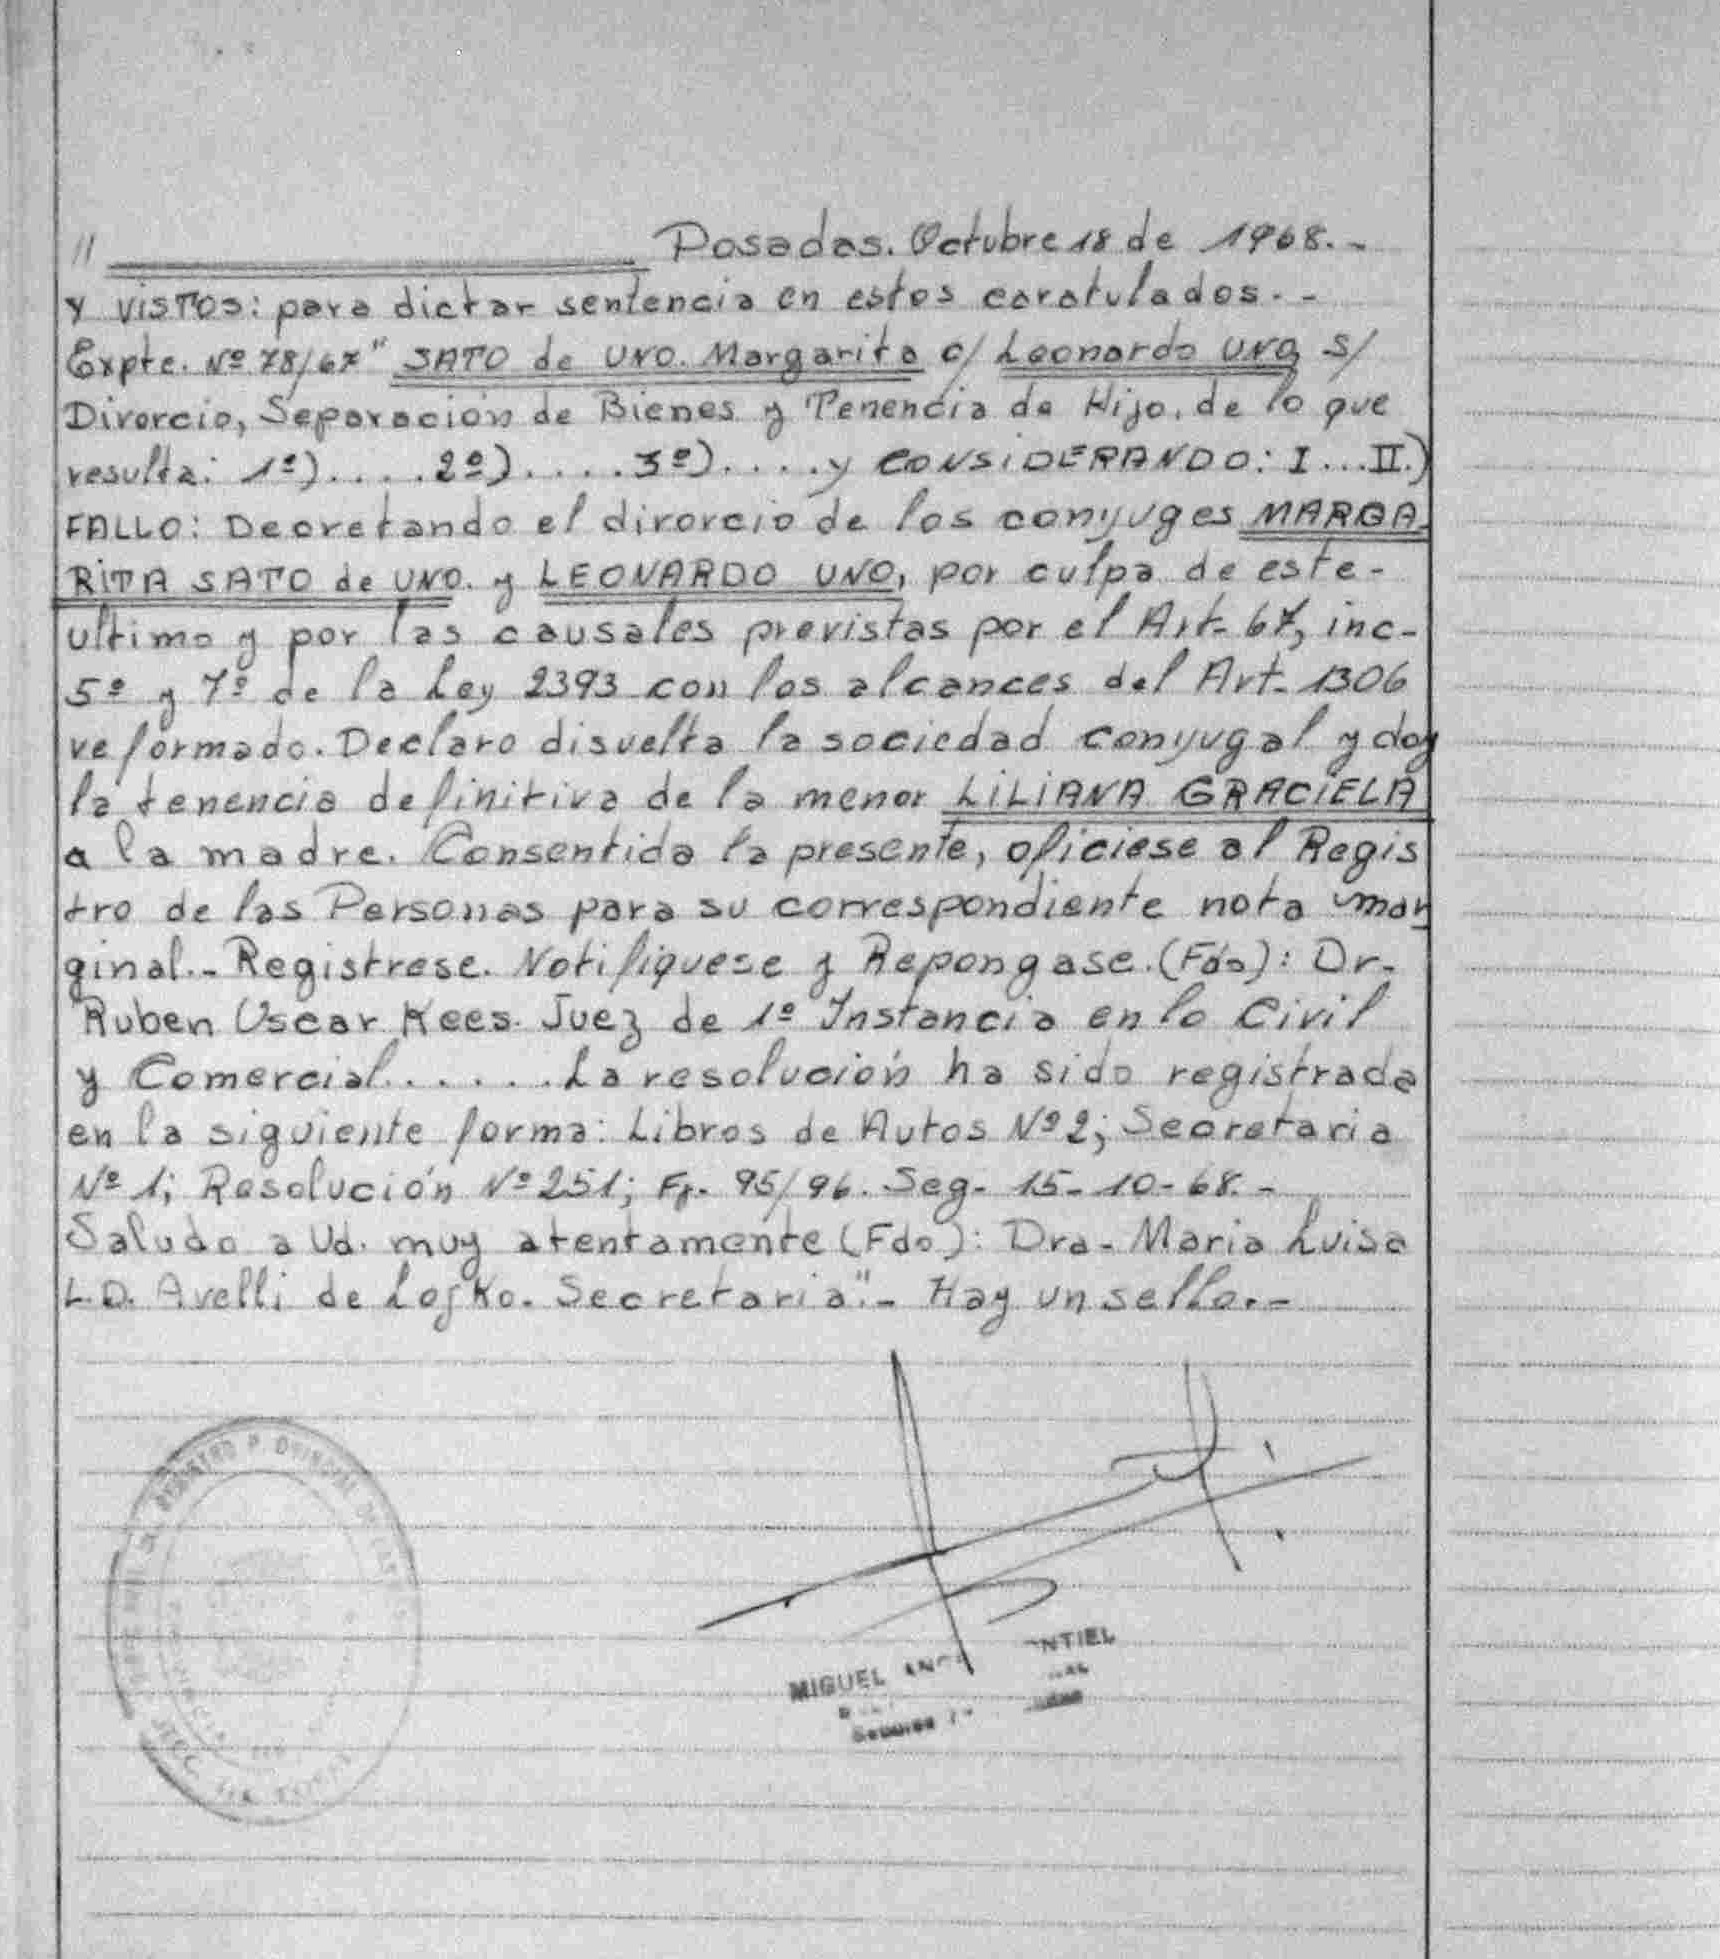 // Posadas. Octubre 18 de 1968.-
Y VISTOS: para dictar sentencia en estos caratulados.-
Expte. Nº 78/67 " SATO de UNO. Margarita c/ Leonardo UNO, s/
Divorcio, Separación de Bienes y Tenencia de Hijo, de lo que
resulta: 1º)..... 2º)..... 3º)..... y CONSIDERANDO: I...II.)
FALLO: Decretando el divorcio de los conyuges MARGA-
RITA SATO de UNO. y LEONARDO UNO, por culpa de este-
ultimo y por las causales previstas por el Art- 67, inc-
5º y 7º de la Ley 2393 con los alcances del Art- 1306
reformado. Declaro disuelta la sociedad conyugal y doy
la tenencia definitiva de la menor LILIANA GRACIELA
a la madre. Consentida la presente, oficiese al Regis
tro de las Personas para su correspondiente nota mar
ginal.- Registrese. Notifiquese y Repongase. (Fdo): Dr-
Ruben Oscar Kees. Juez de 1º Instancia en lo Civil
y Comercial...... La resolución ha sido registrada
en la siguiente forma: Libros de Autos Nº 2; Secretaria
Nº 1; Resolución Nº 251; Fj- 95/96. Seg- 15-10-68.-
Saludo a Ud. muy atentamente (Fdo): Dra- Maria Luisa
L.D. Avelli de Lojko. Secretaria".- Hay un sello.-
MIGUEL